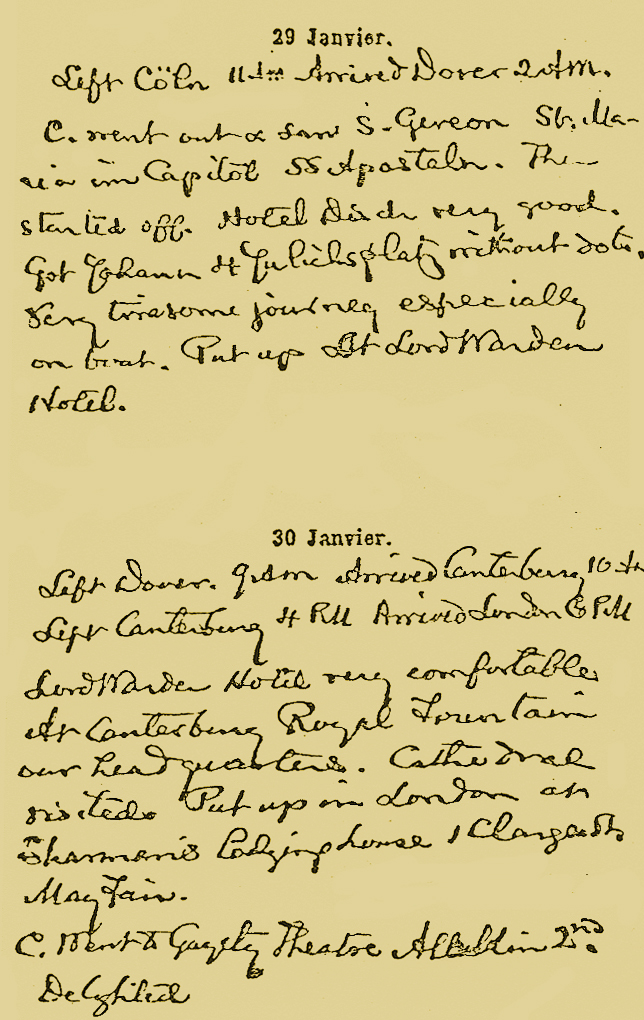 29 Janvier.
Left Cöln 11 Am Arrived Dover 2 AM.
C. went out & saw S. Gereon St. Ma-
ria im Capitol SS Aposteln. Then
started off. Hotel Disch very good.
Got Johann 4 Julichsplatz without dots.
Very tiresome journey especially
on boat. Put up At Lord Warden
Hotel.
30 Janvier.
Left Dover. 9 Am Arrived Canterbury 10 A
Left Canterbury 4 P.M Arrived London 6 P.M
Lord Warden Hotel very comfortable
At Canterbury Royal Fountain
our headquarters. Cathedral
visited. Put up in London at
Lodging house 1 Clarges St.
May Fair.
C. Went to Gayety Theatre Alladdin 2nd.
Delghted